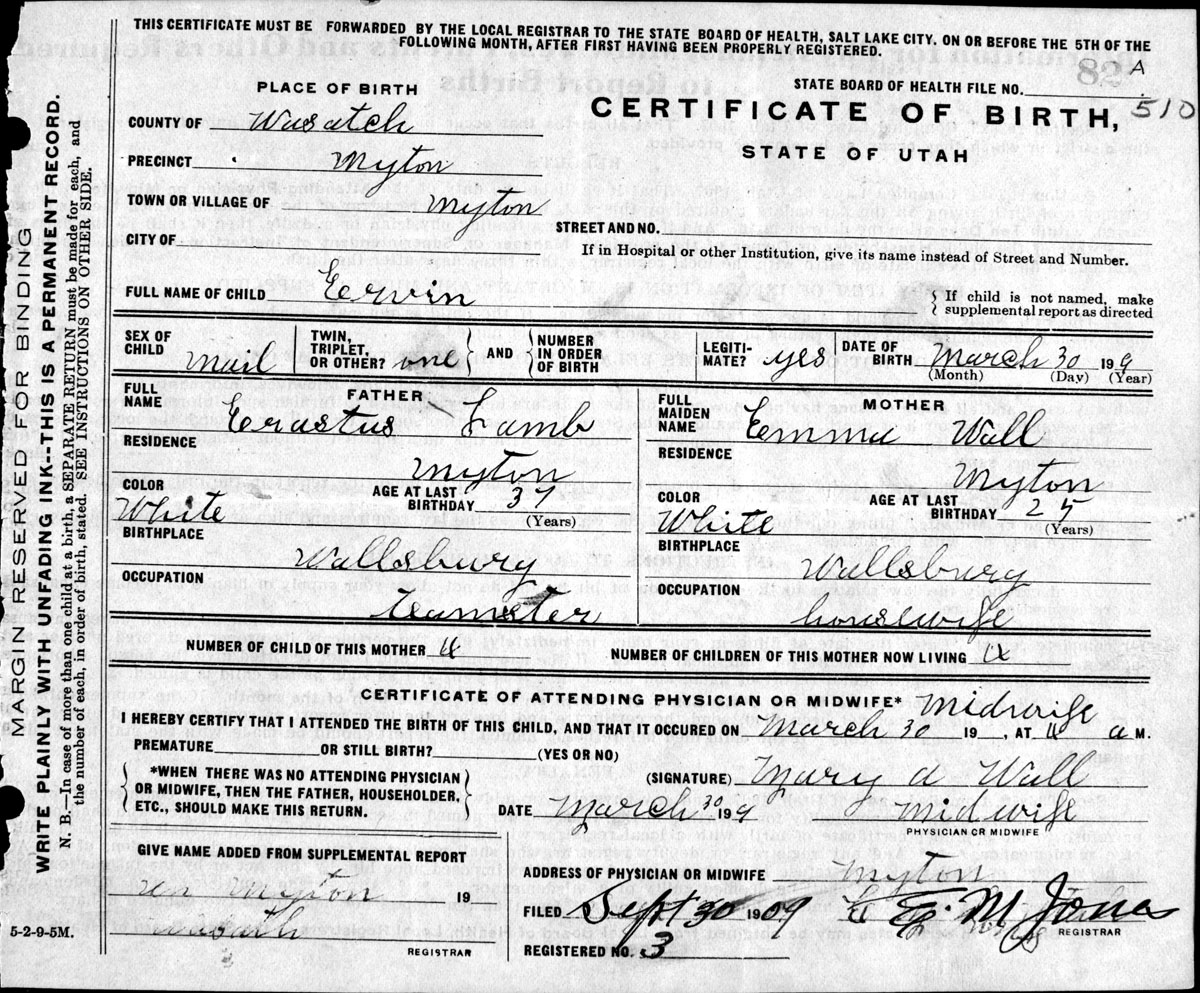 THIS CERTIFICATE MUST BE FORWARDED BY THE LOCAL REGISTRAR TO THE STATE BOARD OF HEALTH, SALT LAKE CITY, ON OR BEFORE THE 5TH OF THE
FOLLOWING MONTH, AFTER FIRST HAVING BEEN PROPERLY REGISTERED.
MARGIN RESERVED FOR BINDING
WRITE PLAINLY WITH UNFADING INK--THIS IS A PERMANENT RECORD.
N. B.—In case of more than one child at a birth, a SEPARATE RETURN must be made for each, and
the number of each, in order of birth, stated. SEE INSTRUCTIONS ON OTHER SIDE.
A
STATE BOARD OF HEALTH FILE NO. 510
PLACE OF BIRTH
CERTIFICATE OF BIRTH,
STATE OF UTAH
COUNTY OF Wasatch
PRECINCT Myton
TOWN OR VILLAGE OF Myton
STREET AND NO.
CITY OF
If in Hospital or other Institution, give its name instead of Street and Number.
FULL NAME OF CHILD Ervin
{ If child is not named, make
supplemental report as directed
SEX OF CHILD Mail
TWIN, TRIPLET, OR OTHER? one } AND { NUMBER IN ORDER OF BIRTH
LEGITIMATE? yes
DATE OF BIRTH March 30 199
(Month) (Day) (Year)
FATHER
FULL NAME Erastus Lamb
RESIDENCE Myton
COLOR White
AGE AT LAST BIRTHDAY 37
(Years)
BIRTHPLACE Wallsbury
OCCUPATION teamster
MOTHER
FULL MAIDEN NAME Emma Wall
RESIDENCE Myton
COLOR White
AGE AT LAST BIRTHDAY 25
(Years)
BIRTHPLACE Wallsbury
OCCUPATION housewife
NUMBER OF CHILD OF THIS MOTHER 4
NUMBER OF CHILDREN OF THIS MOTHER NOW LIVING 4
CERTIFICATE OF ATTENDING PHYSICIAN OR MIDWIFE* Midwife
I HEREBY CERTIFY THAT I ATTENDED THE BIRTH OF THIS CHILD, AND THAT IT OCCURED ON March 30 19 , AT 4 a M.
PREMATURE OR STILL BIRTH? (YES OR NO)
{ *WHEN THERE WAS NO ATTENDING PHYSICIAN
OR MIDWIFE, THEN THE FATHER, HOUSEHOLDER,
ETC., SHOULD MAKE THIS RETURN. }
(SIGNATURE) Mary A Wall
DATE March 30 199 Midwife
PHYSICIAN OR MIDWIFE
GIVE NAME ADDED FROM SUPPLEMENTAL REPORT
Myton 19
REGISTRAR
ADDRESS OF PHYSICIAN OR MIDWIFE Myton
FILED Sept 30 1909 M Jones
REGISTRAR
REGISTERED NO. 3
5-2-9-5M.